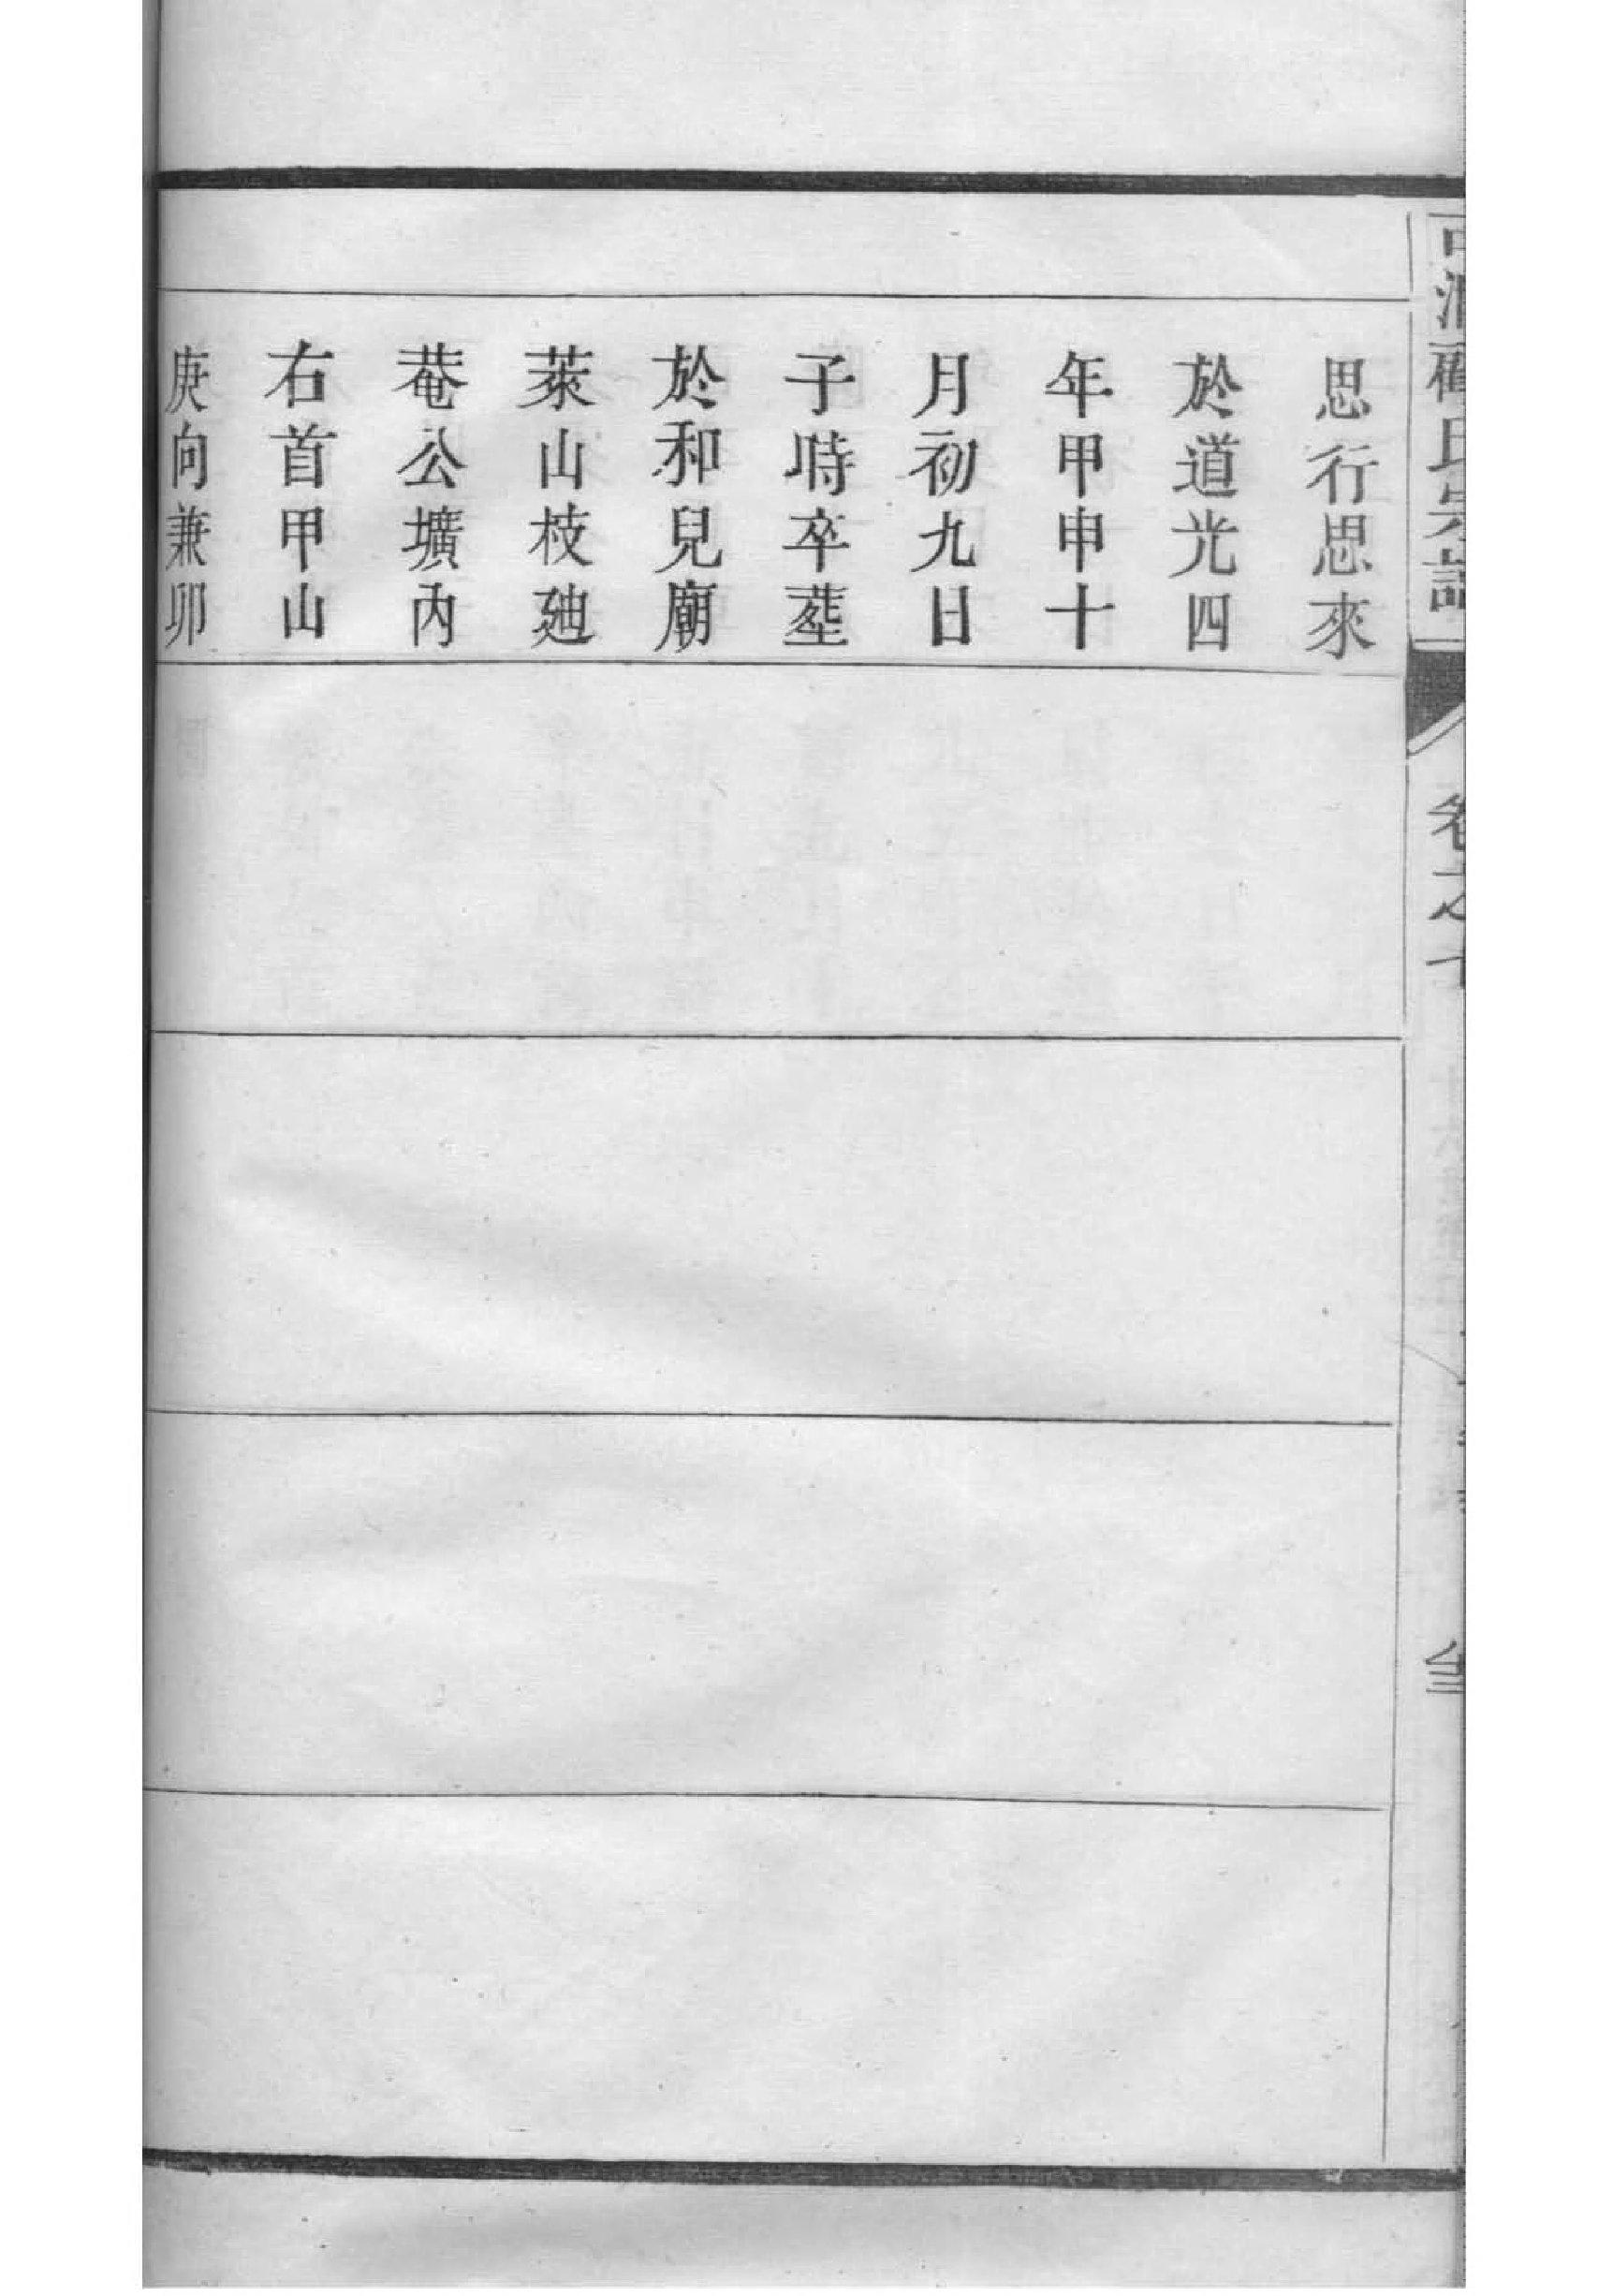 思行思來
於道光四
年甲申十
月初九日
子時卒塟
於和兒廟
萊山枝廸
菴公壙內
右首甲山
庚向兼卯
氏宗譜
卷之